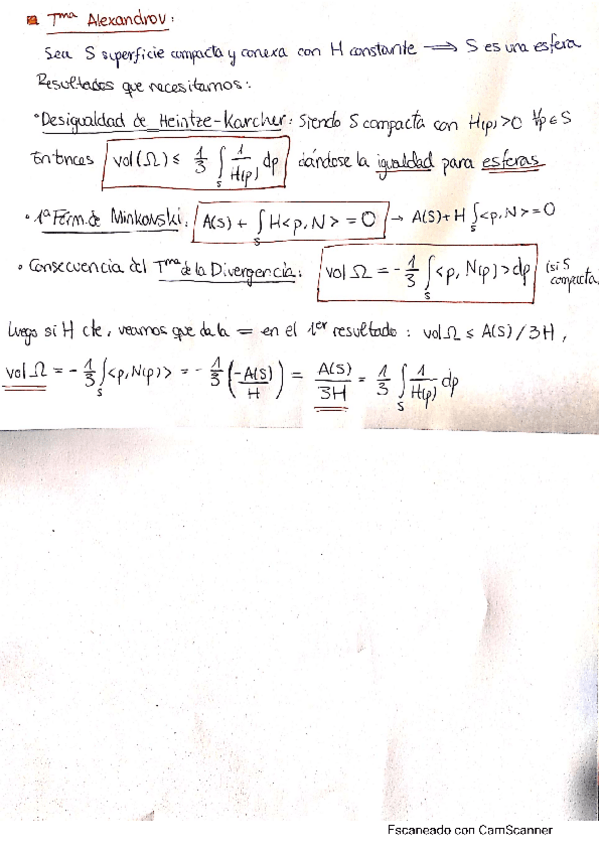 Tma Alexandrov:
Sea S superficie compacta y conexa con H constante ⟹ S es una esfera
Resultados que necesitamos:
• Desigualdad de Heintze-Karcher: Siendo S compacta con H(p)>0 ∀p∈S
Entonces vol(Ω) ≤ 1/3 ∫_S 1/H(p) dp dándose la igualdad para esferas
• 1ª Fórm. de Minkovski: A(S) + ∫_S H<p, N> = 0 → A(S) + H ∫_S <p, N> = 0
• Consecuencia del Tma de la Divergencia: vol Ω = - 1/3 ∫_S <p, N(p)> dp (si S compacta)
Luego si H cte, veamos que da la = en el 1er resultado: vol Ω ≤ A(S)/3H,
vol Ω = - 1/3 ∫_S <p, N(p)> = - 1/3 (-A(S)/H) = A(S)/3H = 1/3 ∫_S 1/H(p) dp
Escaneado con CamScanner